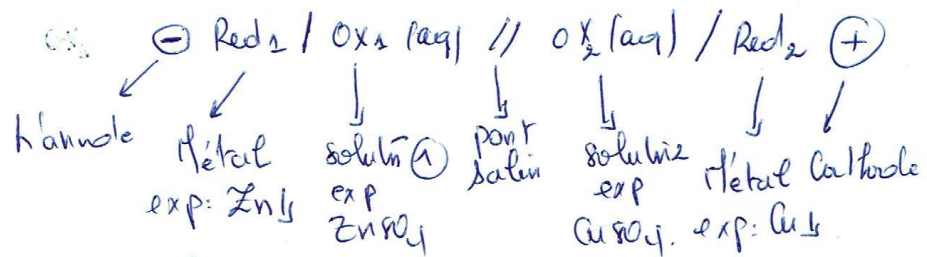 ⊖ Red1 / Ox1 (aq) // Ox2 (aq) / Red2 ⊕
L'annode
Métal
exp: Zn
solut° ①
exp
ZnSO4
pont
salin
solution2
exp
CuSO4.
Métal
exp: Cu
Cathode